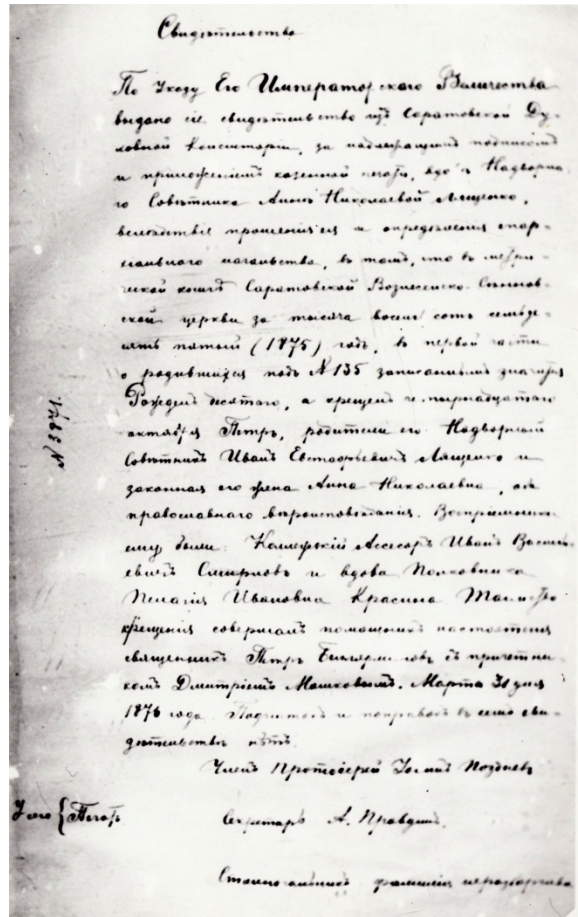 Свидѣтельство
По Указу Его Императорскаго Величества
выдано сіе свидѣтельство изъ Саратовской Ду-
ховной Консисторіи, за надлежащимъ подписомъ
и приложеніемъ казенной печати, вдовѣ Надворна-
го Совѣтника Аннѣ Николаевой Лященко,
вслѣдствіе прошенія ея и опредѣленія епар-
хіальнаго начальства, въ томъ, что въ метри-
ческой книгѣ Саратовской Вознесенско-
ской церкви за тысяча восемь сотъ семьде-
сятъ пятый (1875) годъ, въ первой части
о родившихся подъ № 135 записаннымъ значится
Рожденъ десятаго, а крещенъ четырнадцатаго
октября Петръ, родители его: Надворный
Совѣтникъ Иванъ Евстафьевичъ Лященко и
законная его жена Анна Николаевна, оба
православнаго вѣроисповѣданія. Воспріемники
ему были: Коллежскій Ассесоръ Иванъ Василь-
евичъ Смирновъ и вдова Полковника
Пелагія Ивановна Красина Таинство
крещенія совершалъ помощникъ настоятеля
священникъ Петръ съ причетни-
комъ Дмитріемъ Мошковымъ. Марта 30 дня
1876 года. Подчистокъ и поправокъ въ семъ сви-
дѣтельствѣ нѣтъ.
Членъ Протоіерей Іоаннъ Позднев
Секретарь А. Правдинъ.
Столоначальникъ фамилія неразборчива
№ 3971.
У сего { Печать